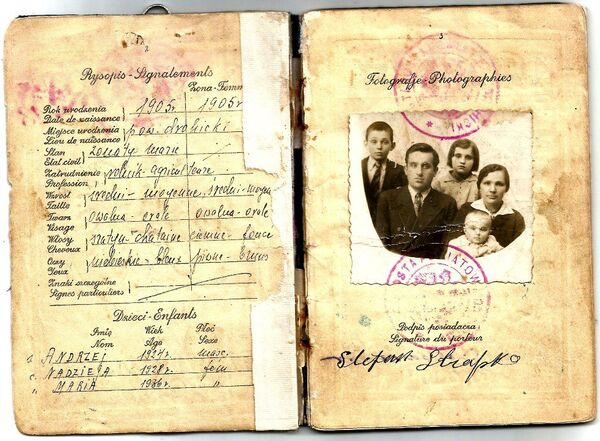 2
Rysopis - Signalements
Żona-Femme
Rok urodzenia
Date de naissance
1905r.
1905r
Miejsce urodzenia
Lieu de naissance
pow. drohicki
Stan
Etat civil
żonaty marié
Zatrudnienie
Profession
rolnik-agriculteur
Wzrost
Taille
średni-moyenne
Twarz
Visage
owalna-ovale
owalna-ovale
Włosy
Cheveux
szatyn-châtaine
ciemne-
Oczy
Yeux
niebieskie-bleux
piwne-bruns
Znaki szczególne
Signes particuliers
Dzieci-Enfants
Imię Wiek Płeć
Nom Age Sexe
ANDRZEJ 1924r. masc.
NADZIEJA 1928r. fem
MARIA 1936r. "
3
Fotografje-Photographies
STA
Podpis posiadacza:
Signature du porteur